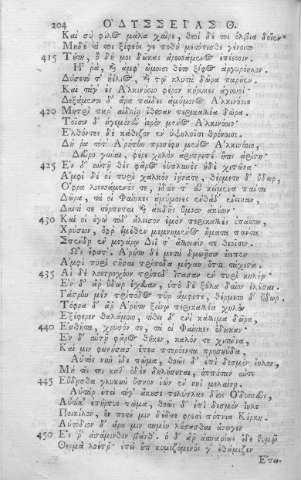 204 ὈΔΥΣΣΕΙΑΣ Θ.
Καὶ σὺ φίλος μάλα χαῖρε, θεοὶ δέ τοι ὄλβια δοῖεν
Μηδέ τί τοι ξίφεός γε ποθὴ μετόπισθε γένοιτο
415 Τούτου, ὃ δή μοι δῶκας ἀρεσσάμενος ἐπέεσσιν.
Ἦ ῥα, καὶ ἀμφ' ὤμοισι θέτο ξίφος ἀργυρόηλον.
Δύσετό τ' ἠέλιος, καὶ τῷ κλυτὰ δῶρα παρῆεν.
Καὶ τάγ' ἐς Ἀλκινόοιο φέρον κήρυκες ἀγαυοί·
Δεξάμενοι δ' ἄρα παῖδες ἀμύμονος Ἀλκινόοιο
420 Μητρὶ παρ' αἰδοίῃ ἔθεσαν περικαλλέα δῶρα.
Τοῖσιν δ' ἡγεμόνευ' ἱερὸν μένος Ἀλκινόοιο·
Ἐλθόντες δὲ κάθιζον ἐν ὑψηλοῖσι θρόνοισι.
Δή ῥα τότ' Ἀρήτην προσέφη μένος Ἀλκινόοιο,
Δεῦρο γύναι, φέρε χηλὸν
425 Ἐν δ' αὐτὴ θὲς φᾶρος ἐϋπλυνὲς ἠδὲ χιτῶνα·
Ἀμφὶ δέ οἱ πυρὶ χαλκὸν ἰήνατε, θέρμετε δ' ὕδωρ,
Ὄφρα λοεσσάμενός τε, ἰδών τ' εὖ κείμενα πάντα
Δῶρα, τά οἱ Φαίηκες ἀμύμονες ἐνθάδ' ἔνεικαν,
Δαιτί τε τέρπηται καὶ ἀοιδῆς ὕμνον ἀκούων·
430 Καί οἱ ἐγὼ τόδ' ἄλεισον ἐμὸν περικαλλὲς ὀπάσσω,
Χρύσεον, ὄφρ' ἐμέθεν μεμνημένος ἤματα πάντα
Σπένδῃ ἐν μεγάρῳ Διί τ' ἄλλοισίν τε θεοῖσιν.
Ὣς ἔφατ'· Ἀρήτη δὲ μετὰ δμωῇσιν ἔειπεν
Ἀμφὶ πυρὶ στῆσαι τρίποδα μέγαν ὅττι τάχιστα.
435 Αἱ δὲ λοετροχόον τρίποδ' ἵστασαν ἐν πυρὶ κηλέῳ·
Ἐν δ' ἄρ' ὕδωρ ἔχεαν, ὑπὸ δὲ ξύλα δαῖον ἑλοῦσαι.
Γάστρην μὲν τρίποδος πῦρ ἄμφεπε, θέρμετο δ' ὕδωρ.
Τόφρα δ' ἄρ' Ἀρήτη ξείνῳ περικαλλέα χηλὸν
Ἐξέφερεν θαλάμοιο, τίθει δ' ἐνὶ κάλλιμα δῶρα,
440 Ἐσθῆτα, χρυσόν τε, τά οἱ Φαίηκες ἔδωκαν·
Ἐν δ' αὐτὴ φᾶρος θῆκεν, καλόν τε χιτῶνα,
Καί μιν φωνήσασ' ἔπεα πτερόεντα προσηύδα.
Αὐτὸς νῦν ἴδε πῶμα, θοῶς δ' ἐπὶ δεσμὸν ἴηλον,
Μή τίς τοι καθ' ὁδὸν δηλήσεται, ὁππότ' ἂν αὖτε
445 Εὕδῃσθα γλυκὺν ὕπνον ἰὼν ἐν νηῒ μελαίνῃ.
Αὐτὰρ ἐπεὶ τόγ' ἄκουσε πολύτλας δῖος Ὀδυσσεύς,
Αὐτίκ' ἐπήρτυε πῶμα, θοῶς δ' ἐπὶ δεσμὸν ἴηλε
Ποικίλον, ὅν ποτέ μιν δέδαε φρεσὶ πότνια Κίρκη.
Αὐτόδιον δ' ἄρα μιν ταμίη λούσασθαι ἄνωγεν
450 Ἔς ῥ' ἀσάμινθον βάνθ'· ὁ δ' ἄρ' ἀσπασίως ἴδε θυμῷ
Θερμὰ λοέτρ'· ἐπεὶ οὔτι κομιζόμενός γ' ἐθάμιζεν
Ἐπει-